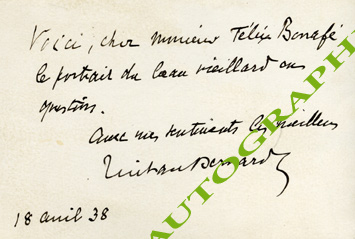 Voici, cher Monsieur Félix Bonafé
le portrait du beau vieillard en
question.
Avec mes sentiments les meilleurs
Tristan Bernard
18 avril 38
AUTOGRAPH